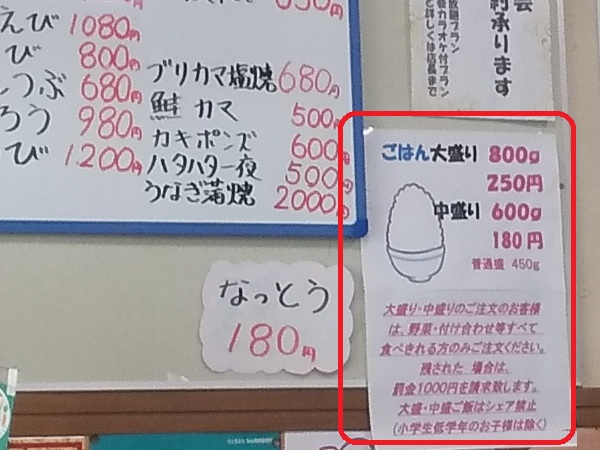 えび 1080円
び 800円
つぶ 680円
ろう 980円
び 1.200円
ブリカマ塩焼 680円
鮭カマ 500円
カキポンズ 600円
ハタハタ一夜 500円
うなぎ蒲焼 2000円
放題プラン
会カラオケ付プラン
と詳しくは店長まで
約承ります
なっとう
180円
ごはん大盛り 800g
250円
中盛り 600g
180円
普通盛 450g
大盛り・中盛りのご注文のお客様
は、野菜・付け合わせ等すべて
食べきれる方のみご注文ください。
残された 場合は、
罰金1000円を請求致します。
大盛・中盛ご飯はシェア禁止
(小学生低学年のお子様は除く)